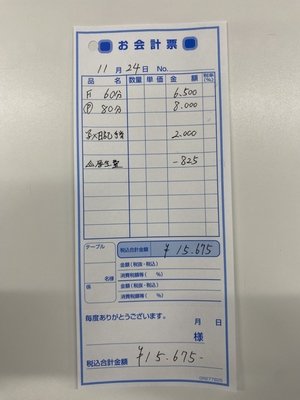 お会計票
11月24日 No.
品名 数量 単価 金額 税率(%)
F 60分 6.500
Ⓟ 80分 8.000
2.000
学生 -825
テーブル
名様
係
税込合計金額 ¥15.675
金額(税抜・税込)
消費税額等( %)
金額(税抜・税込)
消費税額等( %)
毎度ありがとうございます。
月 日
様
税込合計金額 ¥15.675-